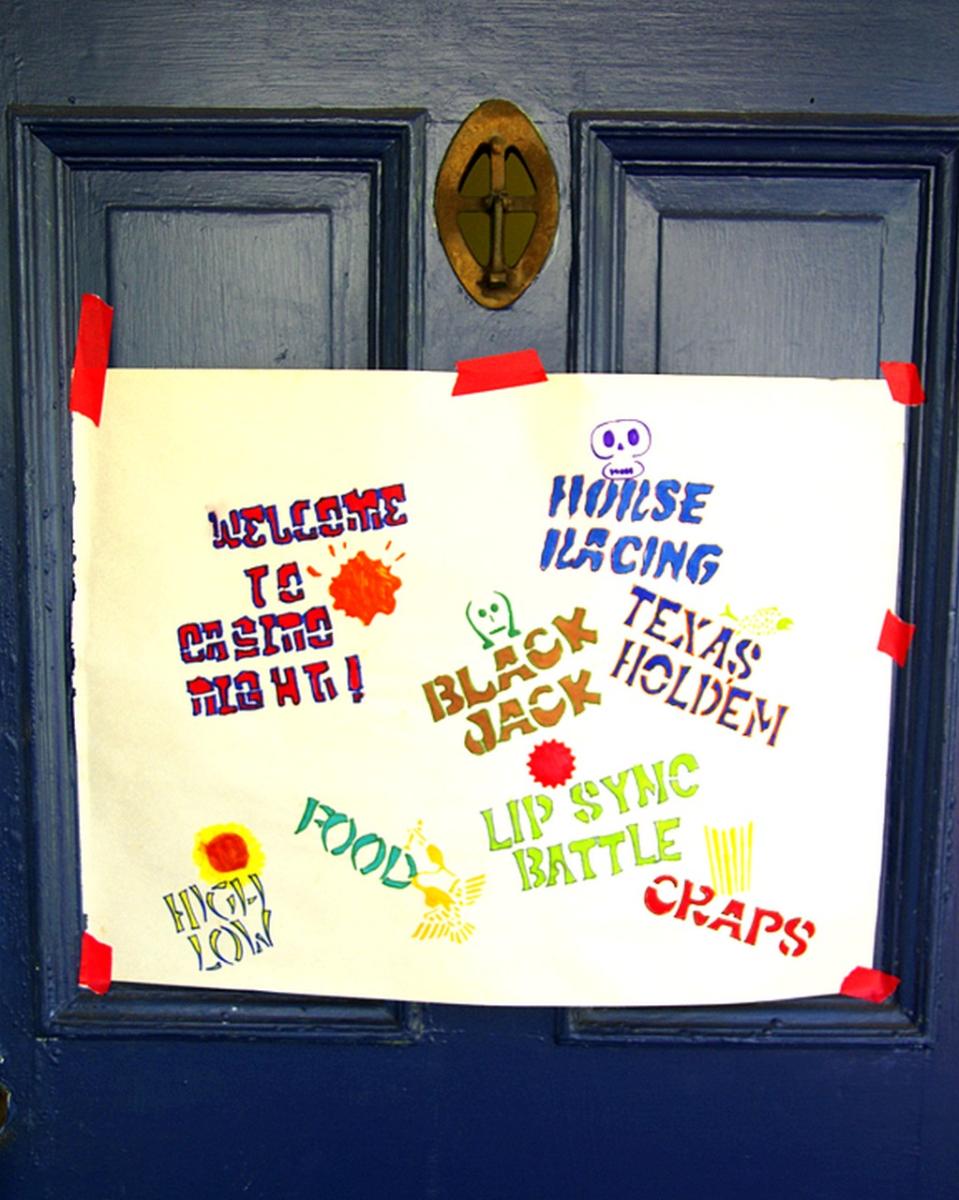 WELCOME
TO
CASINO
NIGHT!
HORSE
RACING
TEXAS
HOLD'EM
BLACK
JACK
LIP SYNC
BATTLE
FOOD
CRAPS
HIGH
LOW